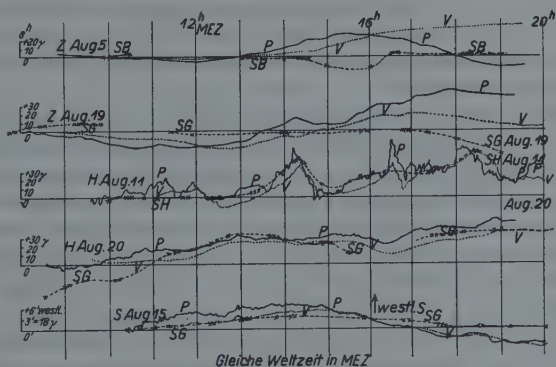 8h 12h MEZ 16h 20h
V
Z Aug 5 SB P V SB
+20γ
10
0
SB P
+30
20
10
0
Z Aug.19 SG SG V P
SG Aug.19
SH Aug.11
+30γ
20
10
0
H Aug.11 P SH P V P P P V
Aug.20
+30γ
20
10
0
H Aug.20 SG V P P V SG V
+6' westl.
3'=18γ
0'
S Aug 15 P SG V P westl. S SG P V
Gleiche Weltzeit in MEZ